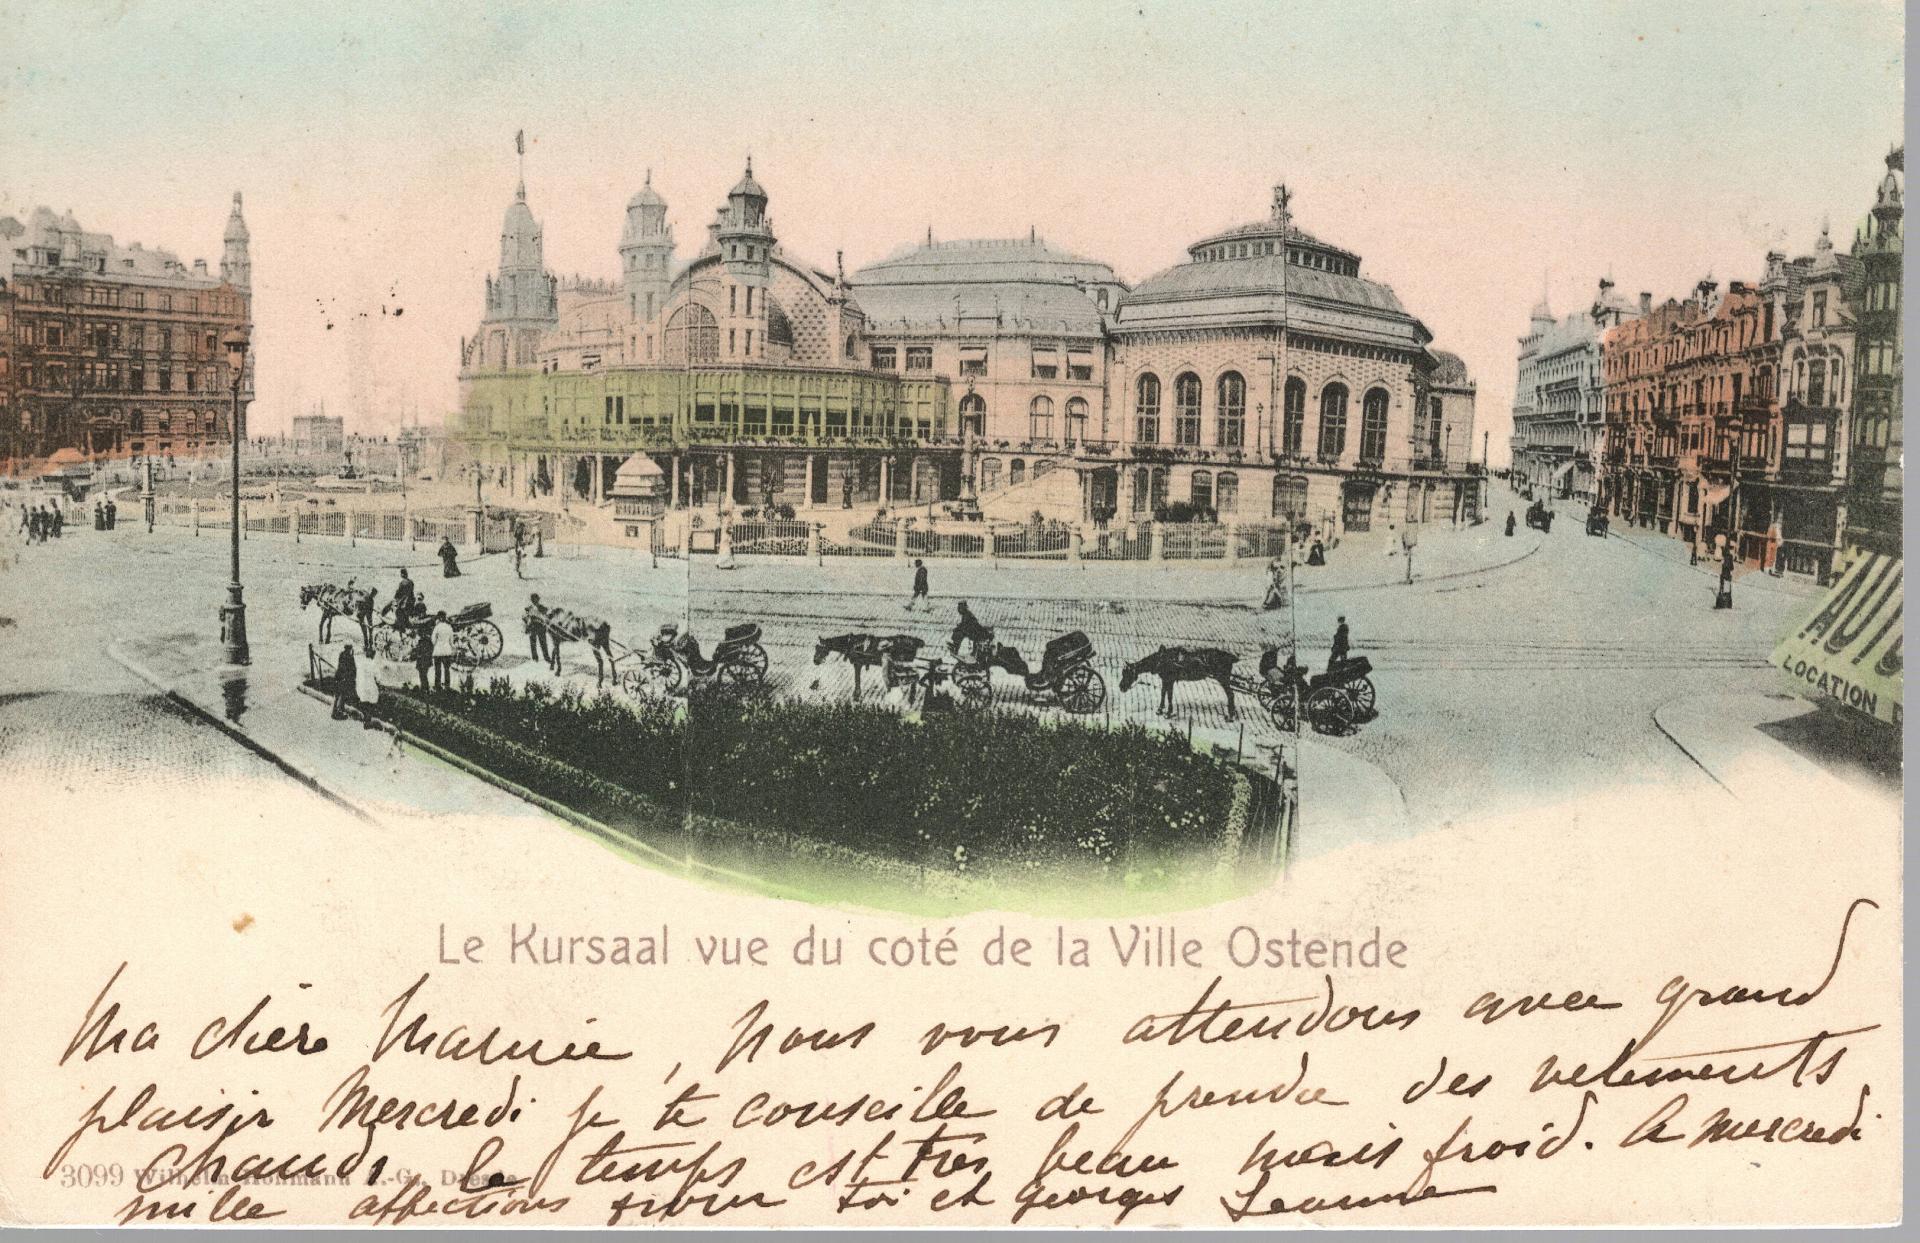 AUTO
LOCATION D
Le Kursaal vue du coté de la Ville Ostende
Ma chère Marnie, Nous vous attendons avec grand
plaisir Mercredi je te conseille de prendre des vetements
chauds le temps est très beau mais froid. A mercredi
3099 Wilhelm Hoffmann A.-G., Dresden
mille affections pour toi et Georges Jeanne